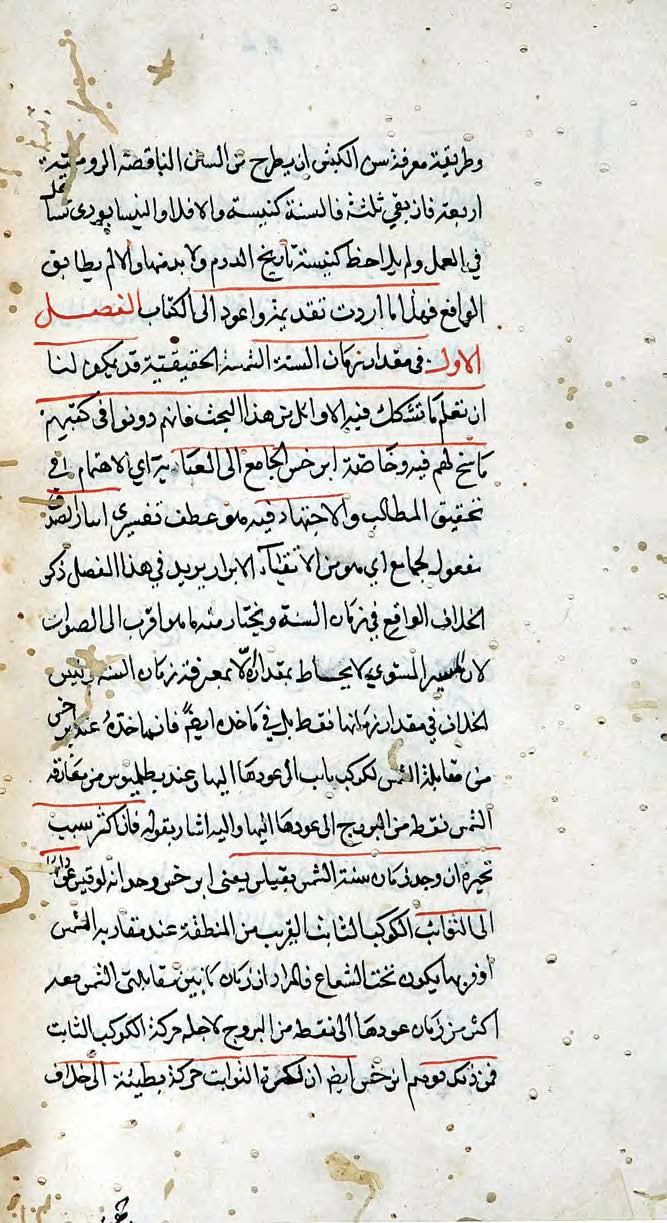 وطريقة معرفة سنى الكبس ان يطرح من السنين الناقصة الرومية
اربعة فان بقي ثلثة فالسنة كبيسة والا فلا والنيسابوري تساهل
في العمل ولم يلاحظ كبيسة تاريخ الروم ولا بد منها والا لم يطابق
الواقع فهذا ما اردت تقديمه واعود الى الكتاب الفصــل
الاول في مقدار زمان السنة الشمسية الحقيقية قد يمكن لنا
ان نعلم ما تشكك فيه الاوائل من هذا البحث فانهم دونوا في كتبهم
ما سنح لهم فيه وخاصة ابرخس الجامع الى العناية اي الاهتمام في
تحقيق المطالب والاجتهاد فيه هو عطف تفسيري ايثار الصدق
مفعول لجامع اي هو من الاتقياء الابرار يريد في هذا الفصل ذكر
الخلاف الواقع في زمان السنة ويختار منه ما هو اقرب الى الصواب
لان المسير المستوي لا يحاط بمقداره الا بمعرفة زمان السنة وليس
الخلاف في مقدار زمانها فقط بل في ماخذه ايضا فان ماخذه عند ابرخس
من مقابلة الشمس لكوكب ثابت الى عودها اليها وعند بطلميوس من مفارقة
الشمس نقطة من البروج الى عودها اليها واليه اشار بقوله فان اكثر سبب
تحيره ان وجد زمان سنة الشمس بقياس يعني ابرخس وجد انه لو قيس عودها
الى الثوابت الكوكب الثابت القريب من المنطقة عند مقاربة الشمس
او قربها يكون تحت الشعاع فالمراد ان زمان ما بين مقابلتى الشمس معه
اكثر من زمان عودها الى نقطة من البروج لاجل حركة الكوكب الثابت
فمن ذلك توهم ابرخس ايضا ان لكرة الثوابت حركة بطيئة الى خلاف